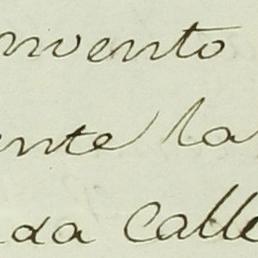 nvento
ente la
da Calle